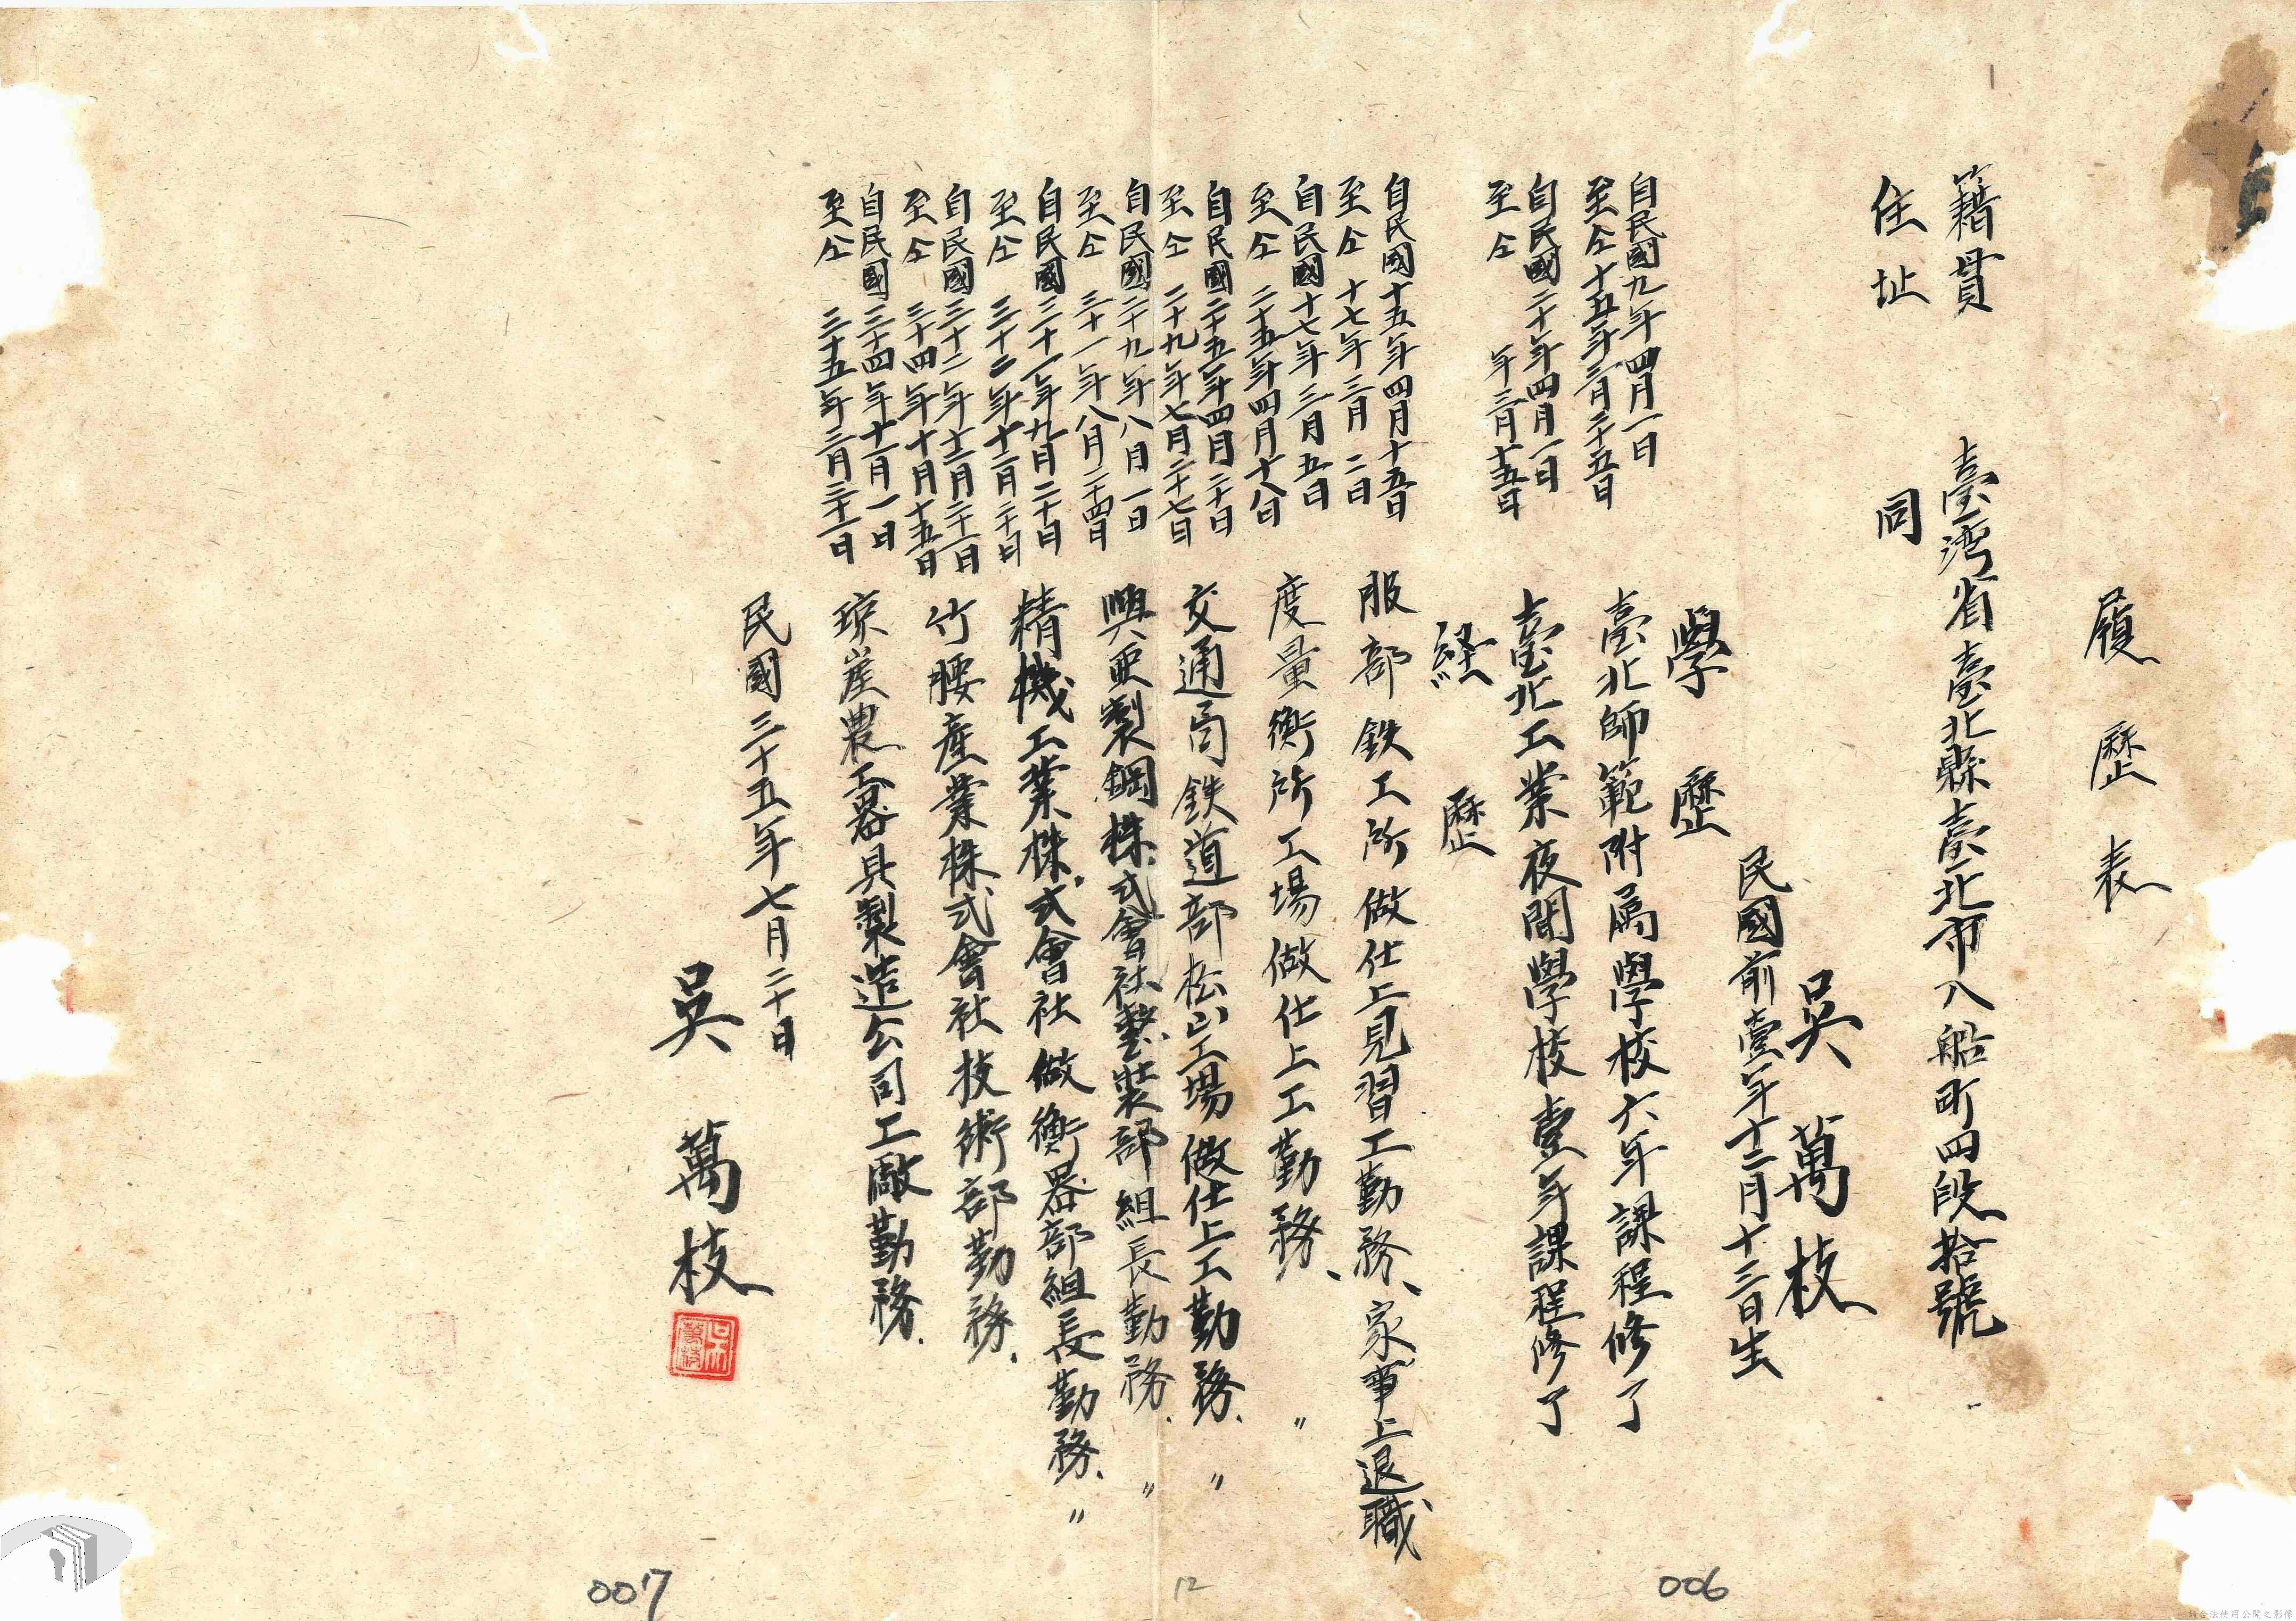 履歷表
籍貫 臺湾省臺北縣臺北市八船町四段拾號
住址 同
吳萬枝
民國前壹年十二月十三日生
學歷
自民國九年四月一日
至仝十五年三月二十五日
臺北師範附属學校六年課程修了
自民國二十年四月一日
至仝 年三月十五日
臺北工業夜間學校壹年課程修了
経歷
自民國十五年四月十五日
至仝十七年三月二日
服部鉄工所做仕上見習工勤務、家事上退職
自民國十七年三月五日
至仝二十五年四月十八日
度量衡所工場做仕上工勤務、〃
自民國二十五年四月二十日
至仝二十九年七月二十七日
交通局鉄道部松山工場做仕上工勤務、〃
自民國二十九年八月一日
至仝三十一年八月二十四日
興亜製鋼株式會社整裝部組長勤務、〃
自民國三十一年九月二十日
至仝三十二年十二月二十日
精機工業株式會社做衡器部組長勤務、〃
自民國三十二年十二月二十一日
至仝三十四年十月十五日
竹腰産業株式會社技術部勤務、
自民國三十四年十一月一日
至仝三十五年三月三十一日
瓊崖農工器具製造公司工廠勤務、
民國三十五年七月二十日
吳萬枝
吳萬枝
007
12
006